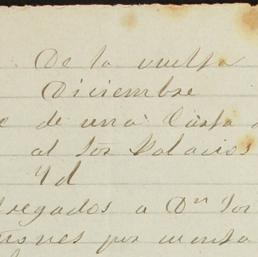 De la vuelta
Diciembre
de una Carta
al Sor Palacios
Id
tregados a Dn Jor
iones por cuenta